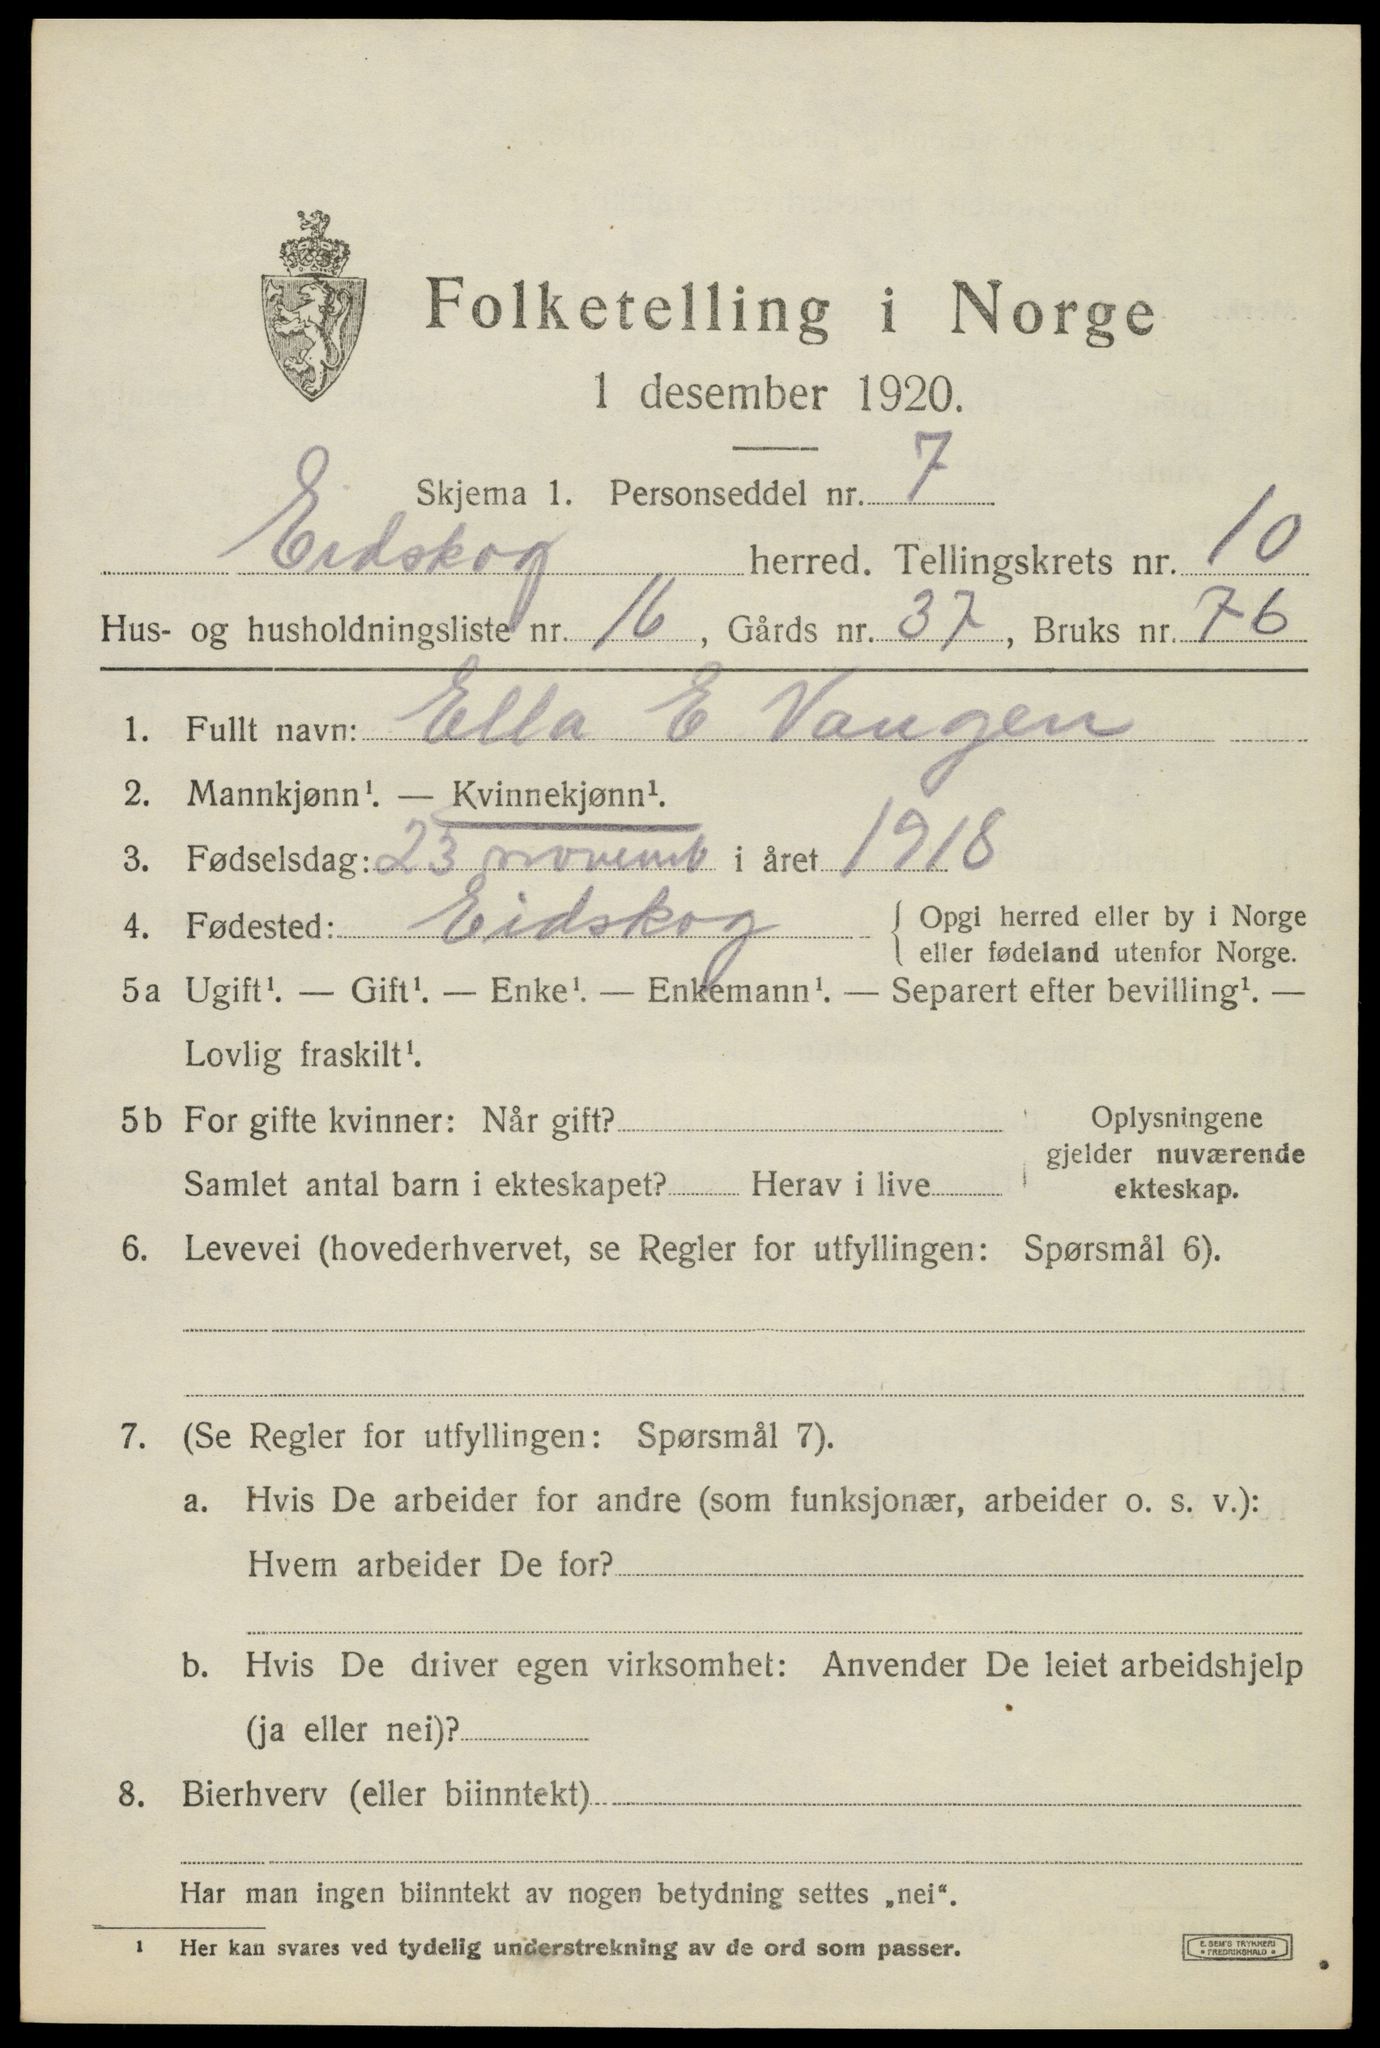 Folketelling i Norge
1 desember 1920.
Skjema 1. Personseddel nr. 7
Eidskog herred. Tellingskrets nr. 10
Hus- og husholdningsliste nr. 16, Gårds nr. 37, Bruks nr. 76
1. Fullt navn: Ella E Vangen
2. Mannkjønn¹. — Kvinnekjønn¹.
3. Fødselsdag: 23 novemb i året 1918
4. Fødested: Eidskog { Opgi herred eller by i Norge
eller fødeland utenfor Norge.
5a Ugift¹. — Gift¹. — Enke¹. — Enkemann¹. — Separert efter bevilling¹. —
Lovlig fraskilt¹.
5b For gifte kvinner: Når gift?
Samlet antal barn i ekteskapet? Herav i live
Oplysningene
gjelder nuværende
ekteskap.
6. Levevei (hovederhvervet, se Regler for utfyllingen: Spørsmål 6).
7. (Se Regler for utfyllingen: Spørsmål 7).
a. Hvis De arbeider for andre (som funksjonær, arbeider o. s. v.):
Hvem arbeider De for?
b. Hvis De driver egen virksomhet: Anvender De leiet arbeidshjelp
(ja eller nei)?
8. Bierhverv (eller biinntekt)
Har man ingen biinntekt av nogen betydning settes „nei“.
¹ Her kan svares ved tydelig understrekning av de ord som passer.
E. SEM'S TRYKKERI
• FREDRIKSHALD •